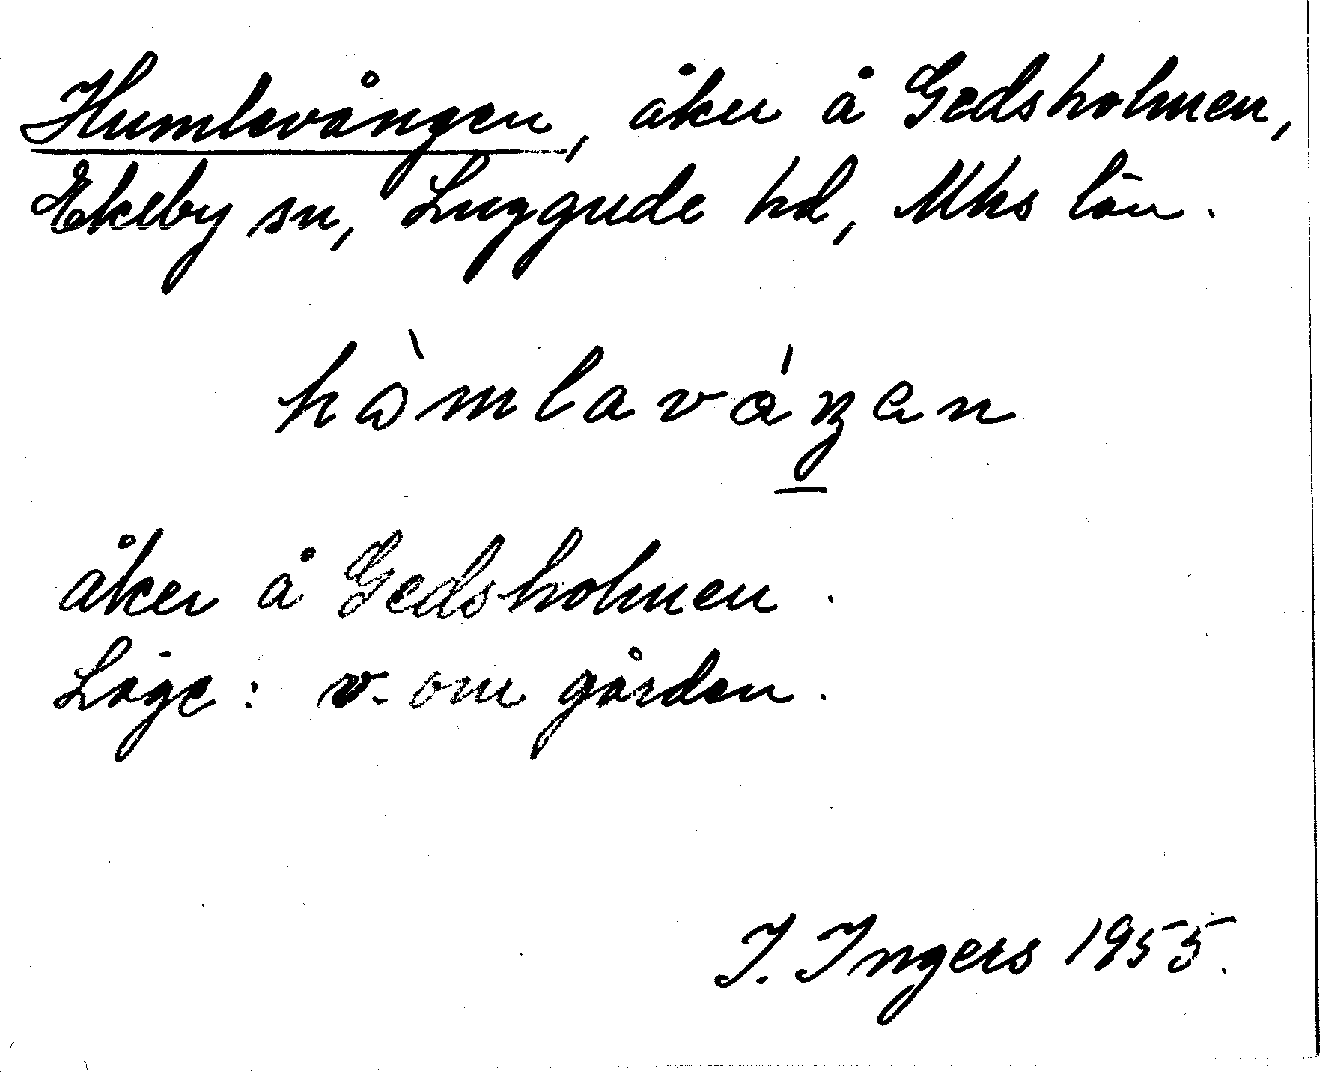 Humlevången, åker å Gedsholmen,
Ekeby sn, Luggude hd, Mhs län.
hòmlaváŋen
åker å Gedsholmen.
Läge: v. om gården.
I. Ingers 1955.